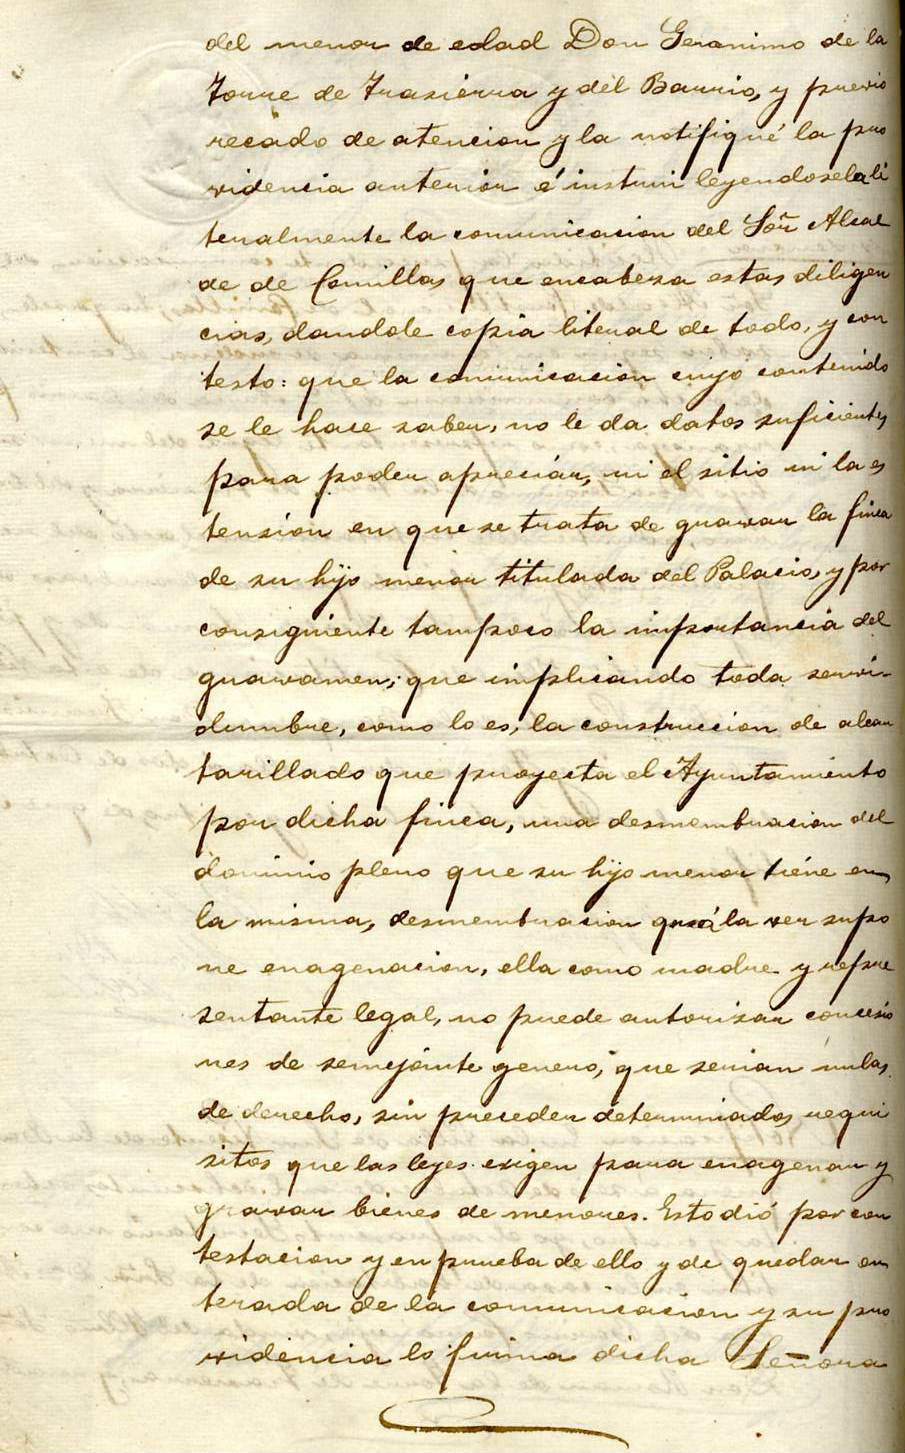 del menor de edad Don Geronimo de la
Torre de Trasierra y del Barrio, y previo
recado de atencion y la notifiqué la pro
videncia anterior é instrui leyendosela li
teralmente la comunicacion del Sor Alcal
de de Comillas que encabeza estas diligen
cias, dandole copia literal de todo, y con
testo: que la comunicacion cuyo contenido
se le hace saber, no le da datos suficientes
para poder apreciar, ni el sitio ni la es
tension en que se trata de gravar la finca
de su hijo menor titulada del Palacio, y por
consiguiente tampoco la importancia del
gravamen; que implicando toda servi-
dumbre, como lo es, la construccion de alcan
tarillado que proyecta el Ayuntamiento
por dicha finca, una desmembracion del
dominio pleno que su hijo menor tiene en
la misma, desmembracion que á la vez supo
ne enagenacion, ella como madre y repre
sentante legal, no puede autorizar concesio
nes de semejante genero, que serian nulas
de derecho, sin preceder determinados requi
sitos que las leyes exigen para enagenar y
gravar bienes de menores. Esto dió por con
testacion y en prueba de ello y de quedar en
terada de la comunicacion y su pro
videncia lo firma dicha Señora